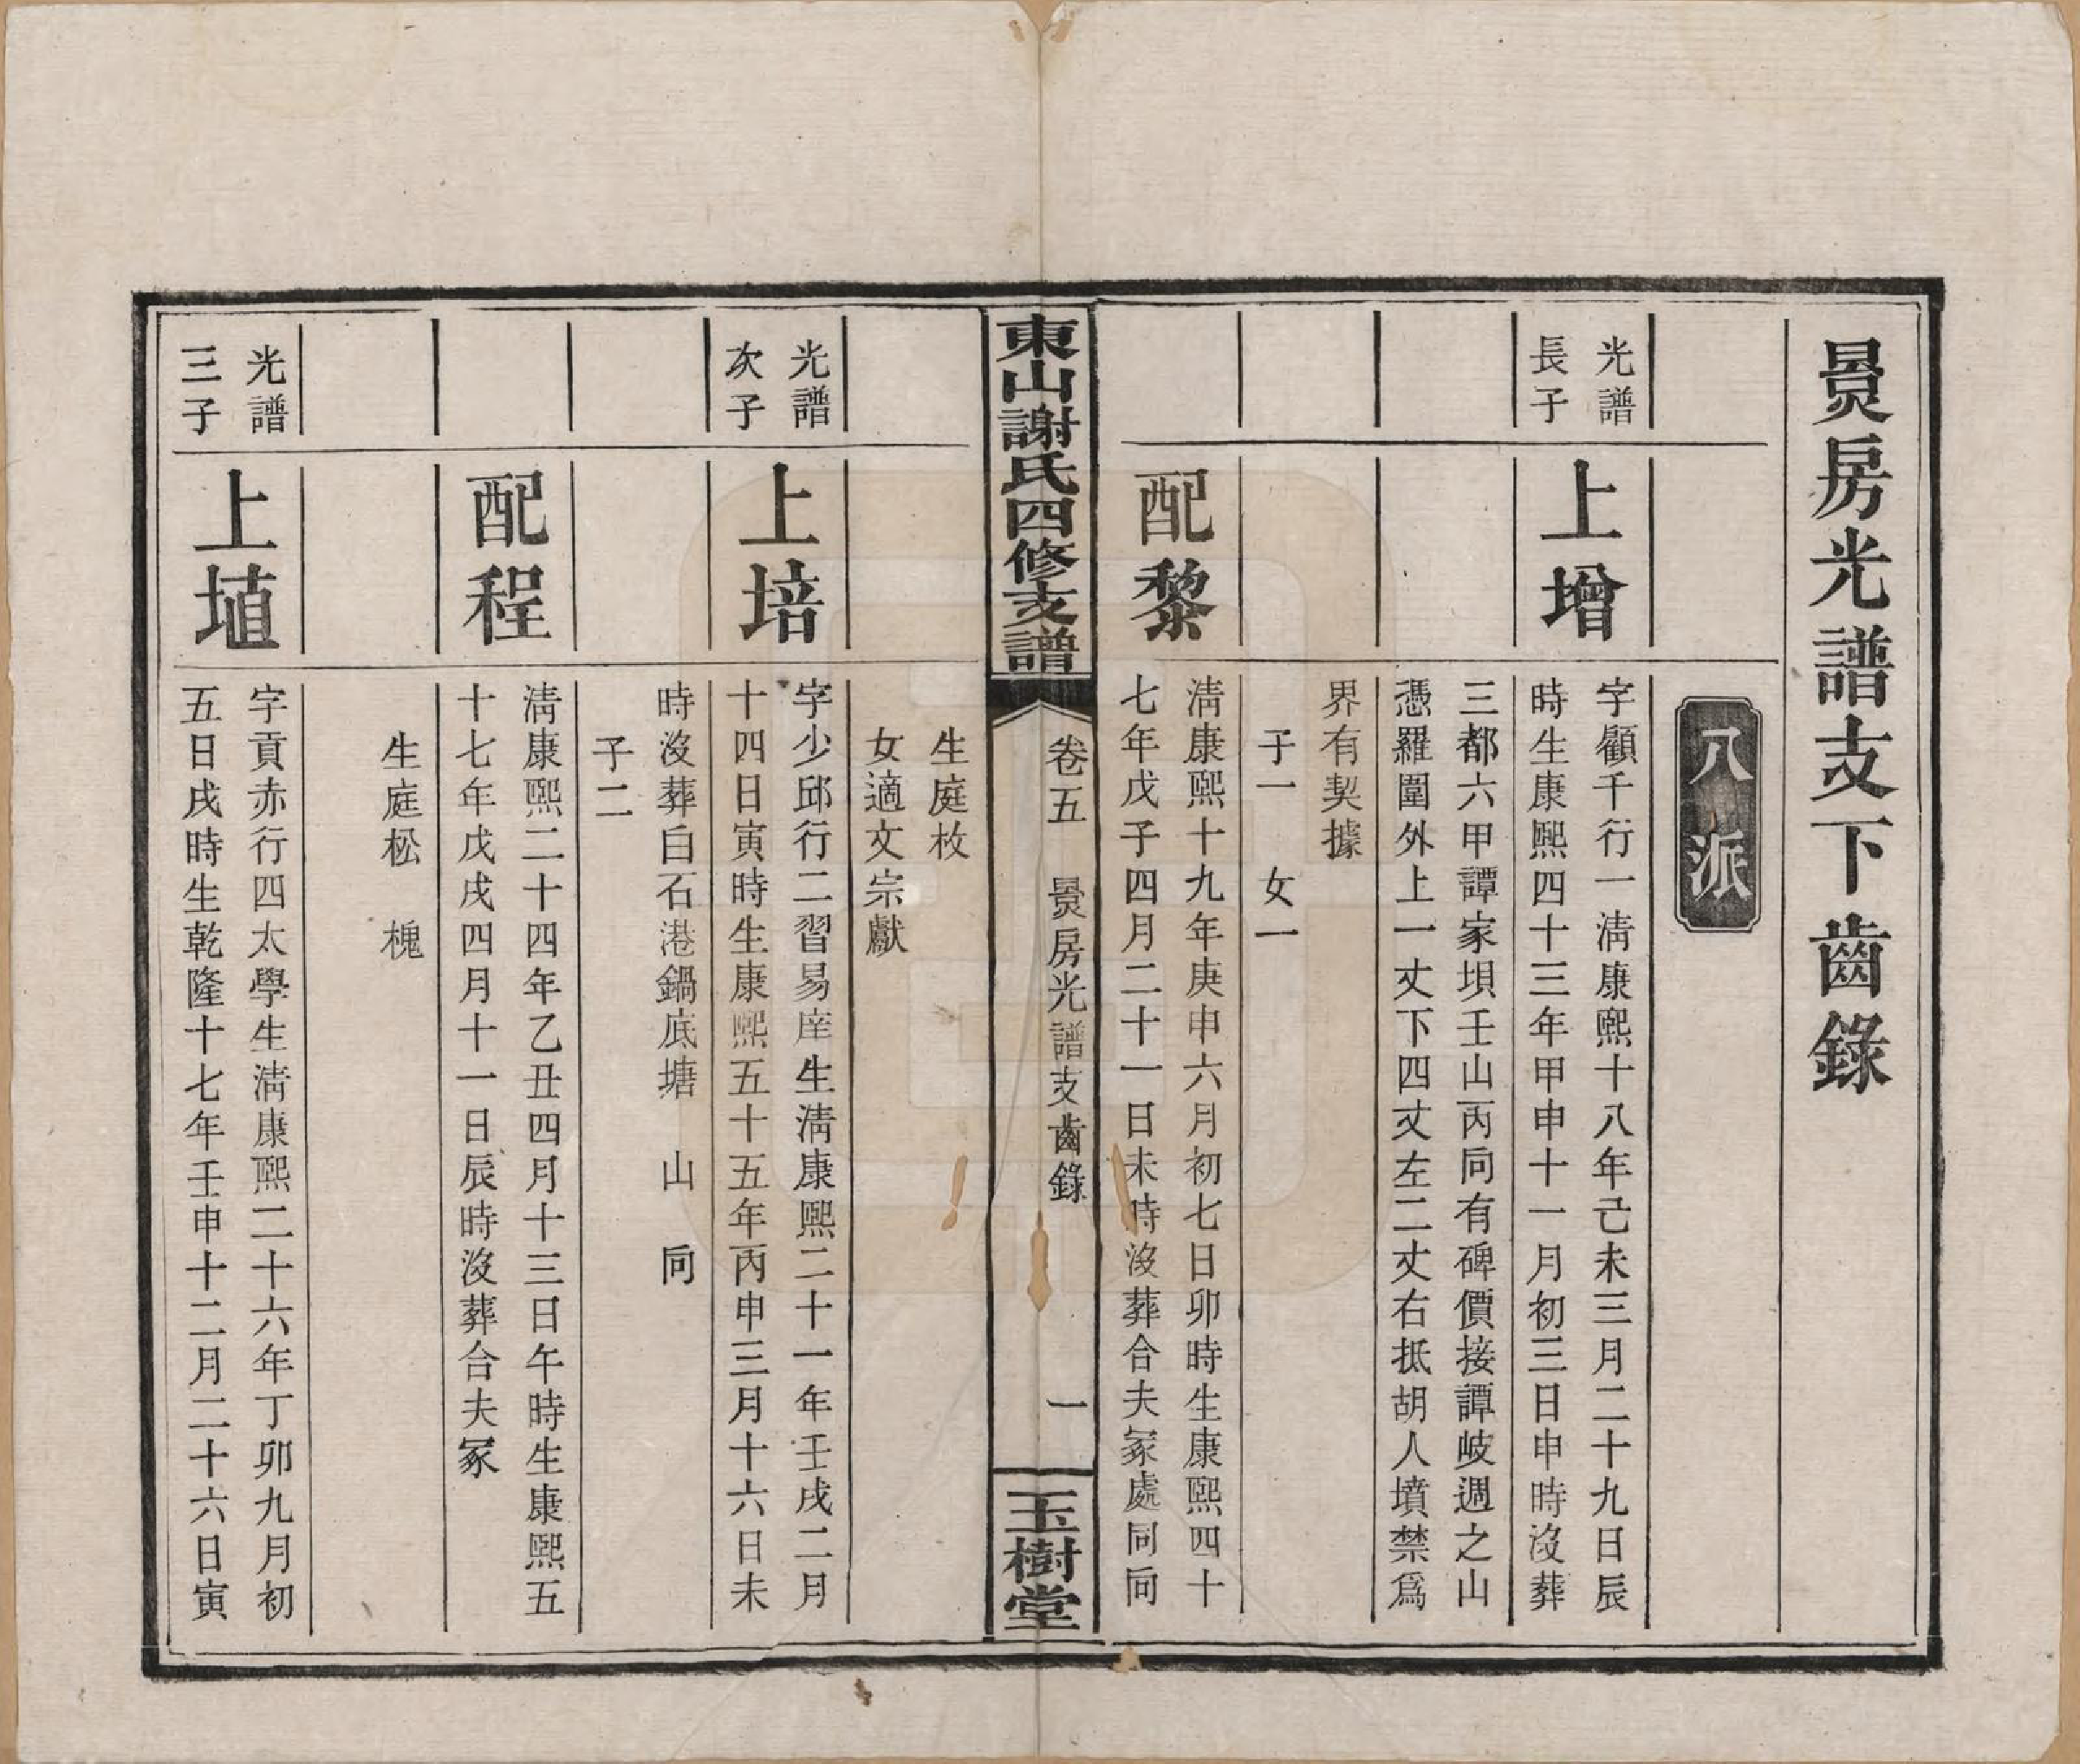 景房光譜支下齒錄
八派
光譜
長子
上增
字顧千行一淸康熙十八年己未三月二十九日辰
時生康熙四十三年甲申十一月初三日申時沒葬
三都六甲譚家垻壬山丙向有碑價接譚岐週之山
憑羅圍外上一丈下四丈左二丈右抵胡人墳禁爲
界有契據
子一 女一
配黎
淸康熙十九年庚申六月初七日卯時生康熙四十
七年戊子四月二十一日未時沒葬合夫冢處同向
東山謝氏四修支譜
卷五 景房光譜支齒錄 一
玉樹堂
生庭枚
女適文宗獻
光譜
次子
上培
字少邱行二習易庠生淸康熙二十一年壬戌二月
十四日寅時生康熙五十五年丙申三月十六日未
時沒葬白石港鍋底塘 山 向
子二
配程
淸康熙二十四年乙丑四月十三日午時生康熙五
十七年戊戌四月十一日辰時沒葬合夫冢
生庭松 槐
光譜
三子
上埴
字貢赤行四太學生淸康熙二十六年丁卯九月初
五日戌時生乾隆十七年壬申十二月二十六日寅